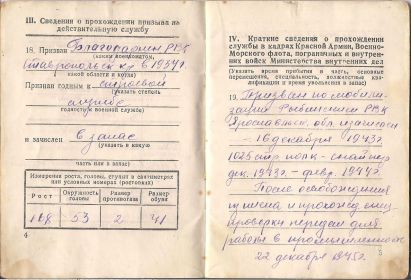 III. Сведения о прохождении призыва на
действительную службу
18. Призван Благодарным РВК
(каким военкоматом,
Ставропольск кр в 1937 г.
какой области и когда)
Призван годным к строевой
(указать степень
службе
годности к военной службе)
и зачислен в запас
(указать в какую
часть или в запас)
Измерения роста, головы, ступни в сантиметрах
или условных номерах (ростовках)
Рост Окружность головы Размер противогаза Размер обуви
168 53 2 41
4
IV. Краткие сведения о прохождении
службы в кадрах Красной Армии, Военно-
Морского флота, пограничных и внутрен-
них войск Министерства внутренних дел
(Указать время прибытия в часть, основные
перемещения, специальность, должностные квали-
фикации и время увольнения в запас)
19. Призван по мобили-
зации РВК
Ярославск. обл.
16 декабря 1943 г.
1025 стр полк - снайпер
дек. 1943 г. - февр. 1944 г.
После освобождения
из плена и прохожд.
проверки передан для
работы в промышленность
22 декабря 1945 г.
5